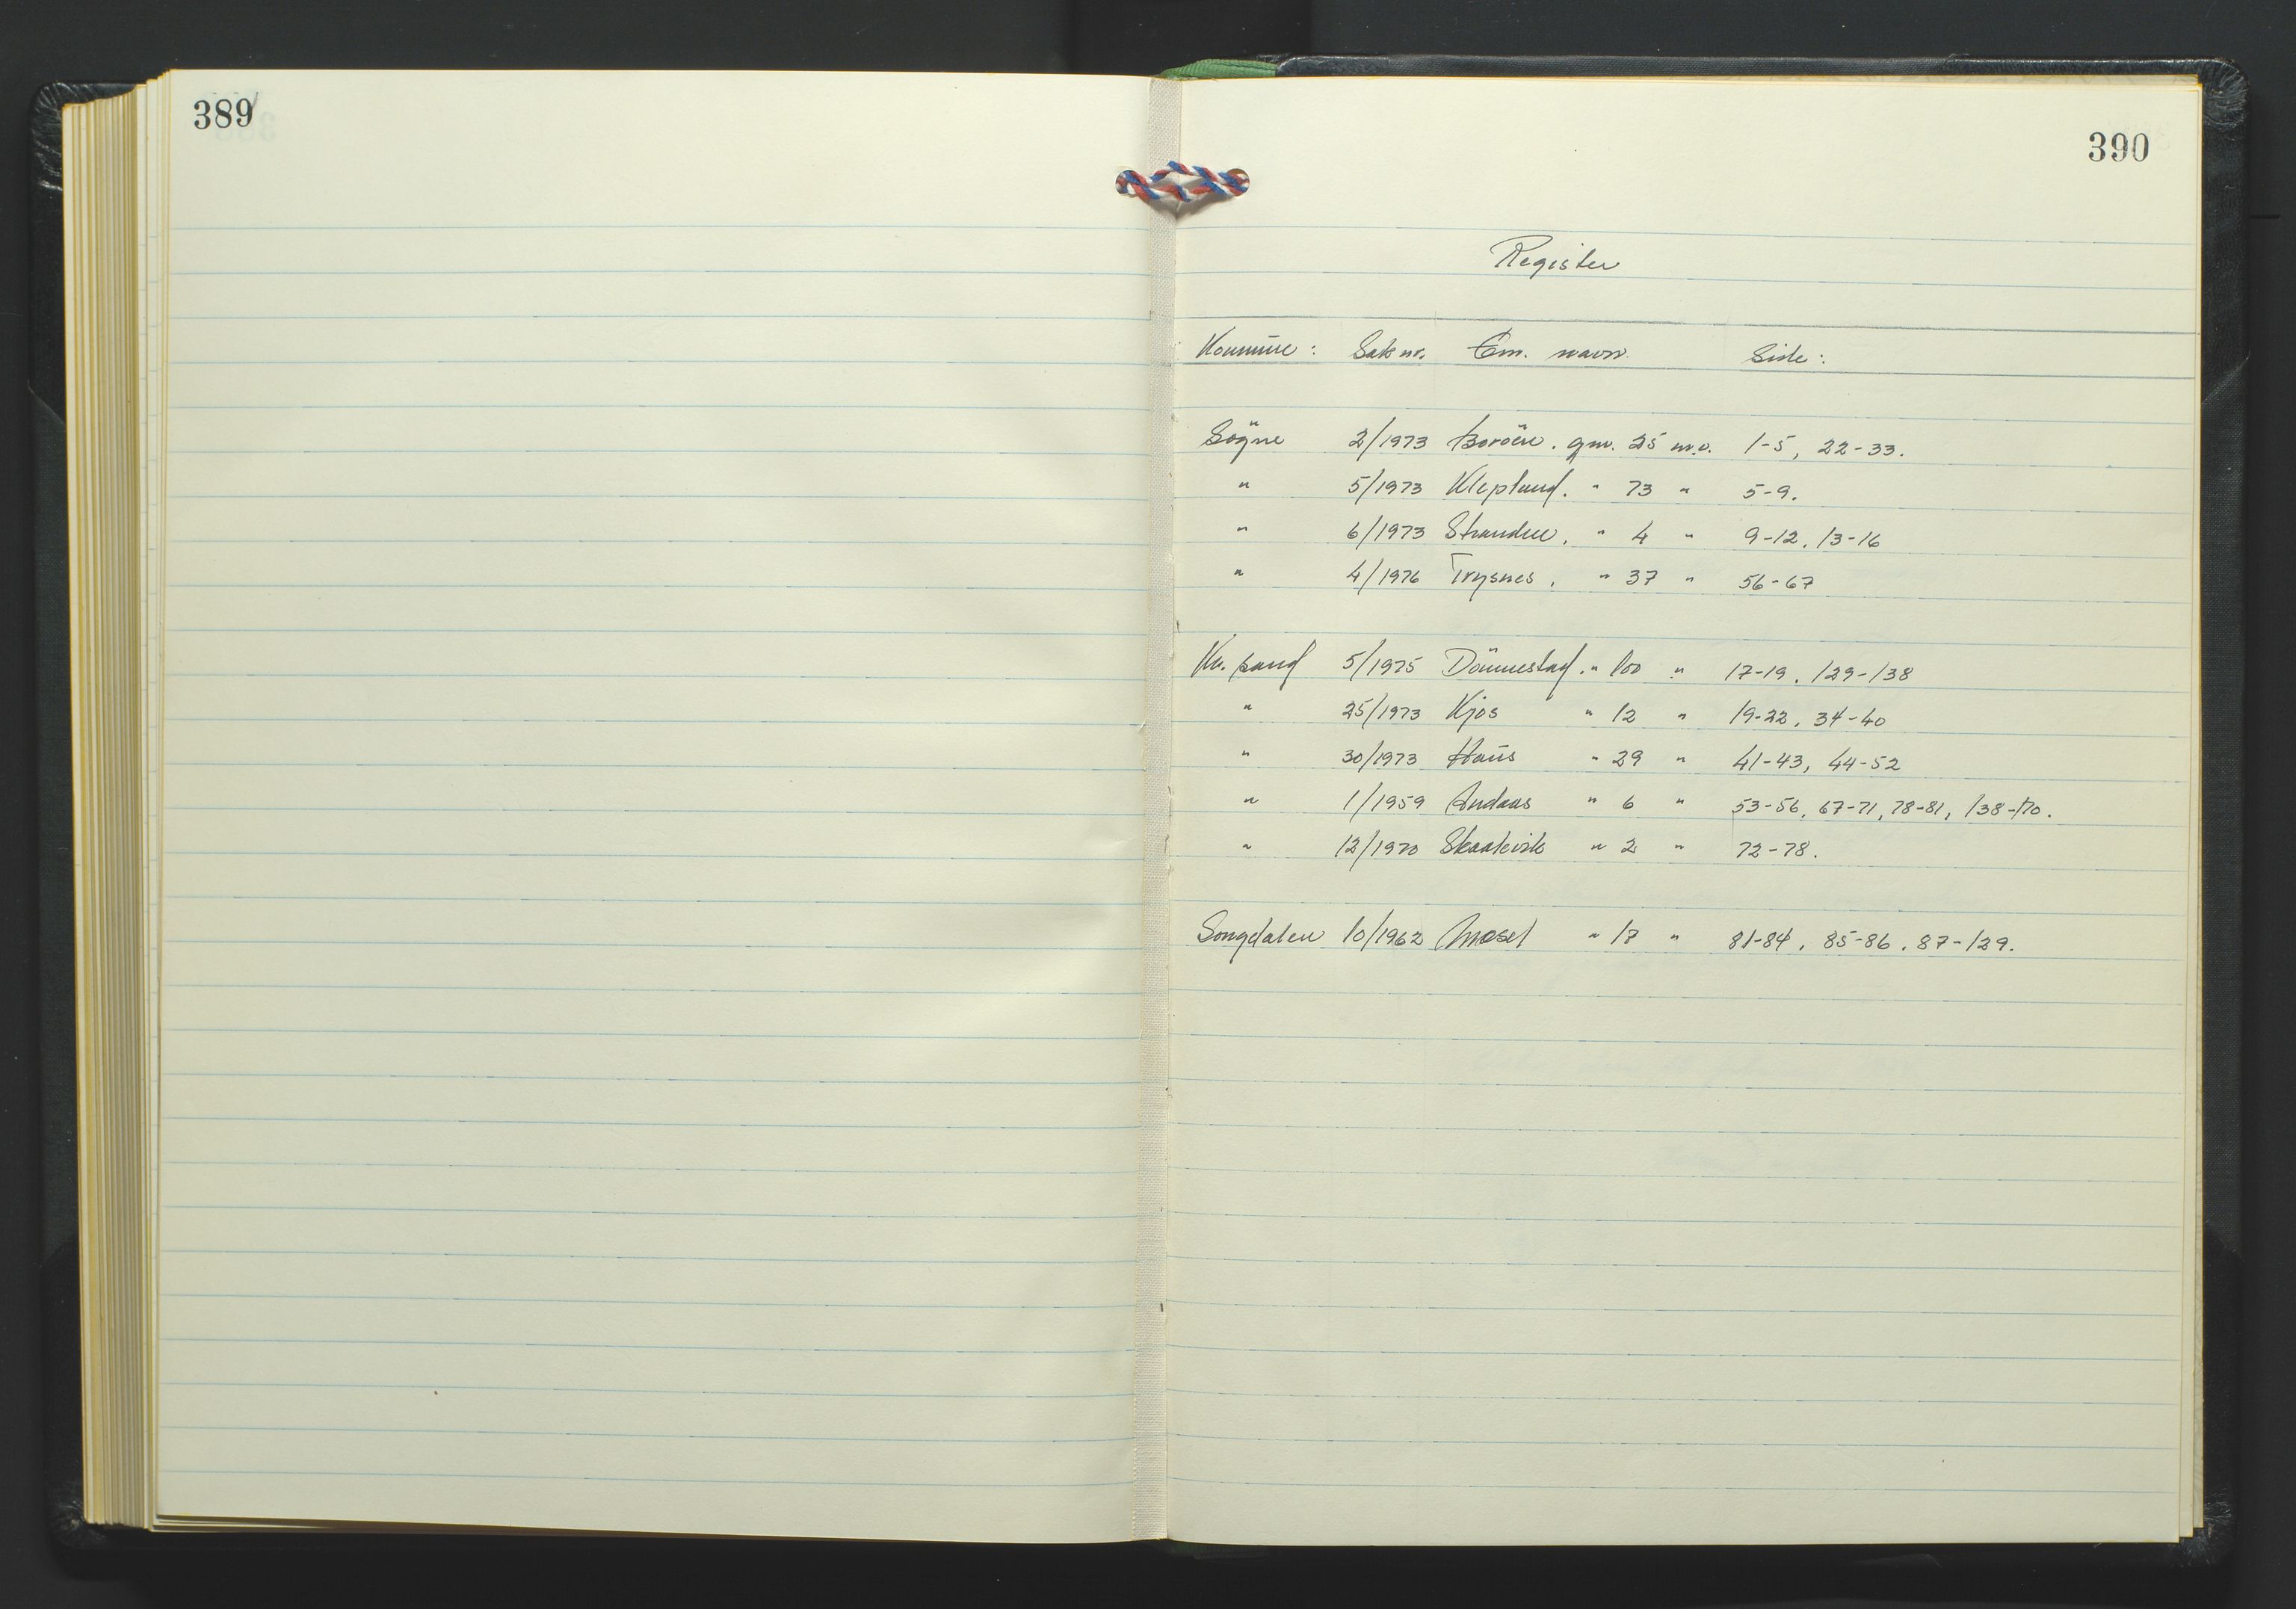 389
390
Register
Kommüne: Sak nr. Em. navn. Side:
Sögne 2/1973 Boröen. gnr. 25 m.v. 1-5, 22-33.
" 5/1973 Klepland. " 73 " 5-9.
" 6/1973 Stranden. " 4 " 9-12, 13-16
" 4/1976 Trysnes. " 37 " 56-67
Kr. sand 5/1975 Dönnestad. " 100 " 17-19, 129-138
" 25/1973 Kjos " 12 " 19-22, 34-40
" 30/1973 Haüs " 29 " 41-43, 44-52
" 1/1959 Andaas " 6 " 53-56, 67-71, 78-81, 138-170.
" 12/1970 Skaalevik " 2 " 72-78.
Songdalen 10/1962 Mosel " 17 " 81-84, 85-86, 87-129.